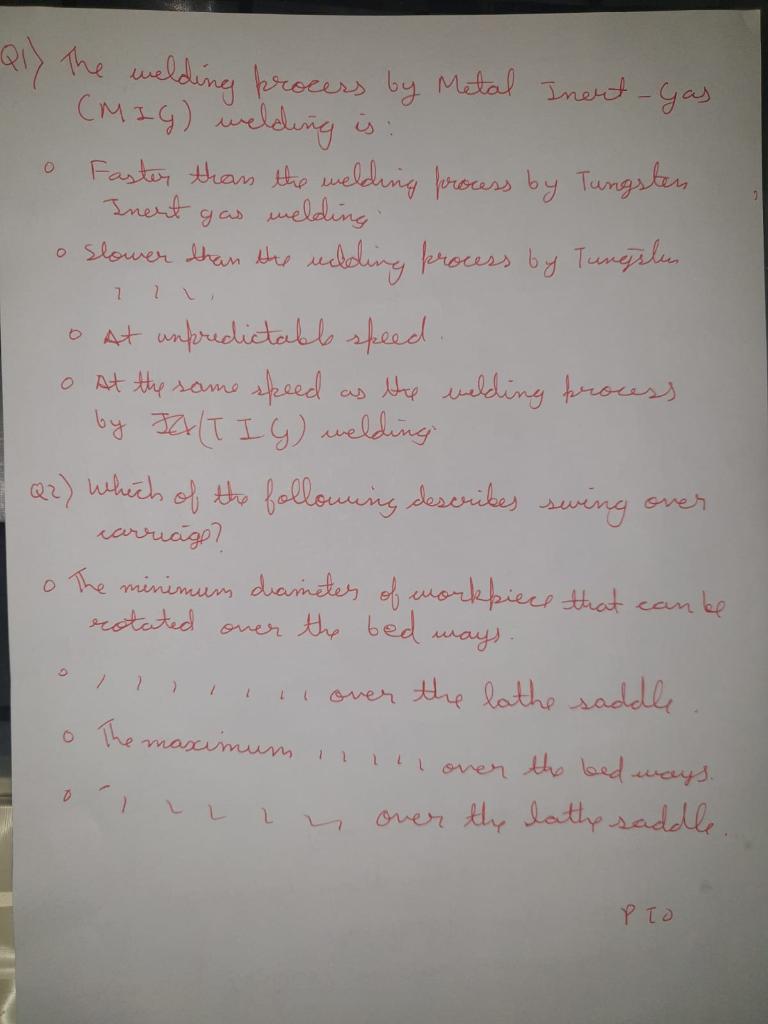 Q1) The welding process by Metal Inert-Gas
(MIG) welding is:
o Faster than the welding process by Tungsten
Inert gas welding.
o Slower than the welding process by Tungsten
, , , ,
o At unpredictable speed.
o At the same speed as the welding process
by (TIG) welding.
Q2) Which of the following describes swing over
carriage?
o The minimum diameter of workpiece that can be
rotated over the bed ways.
o , , , , , , , , over the lathe saddle.
o The maximum , , , , , over the bed ways.
o " , , , , , over the lathe saddle.
PTO